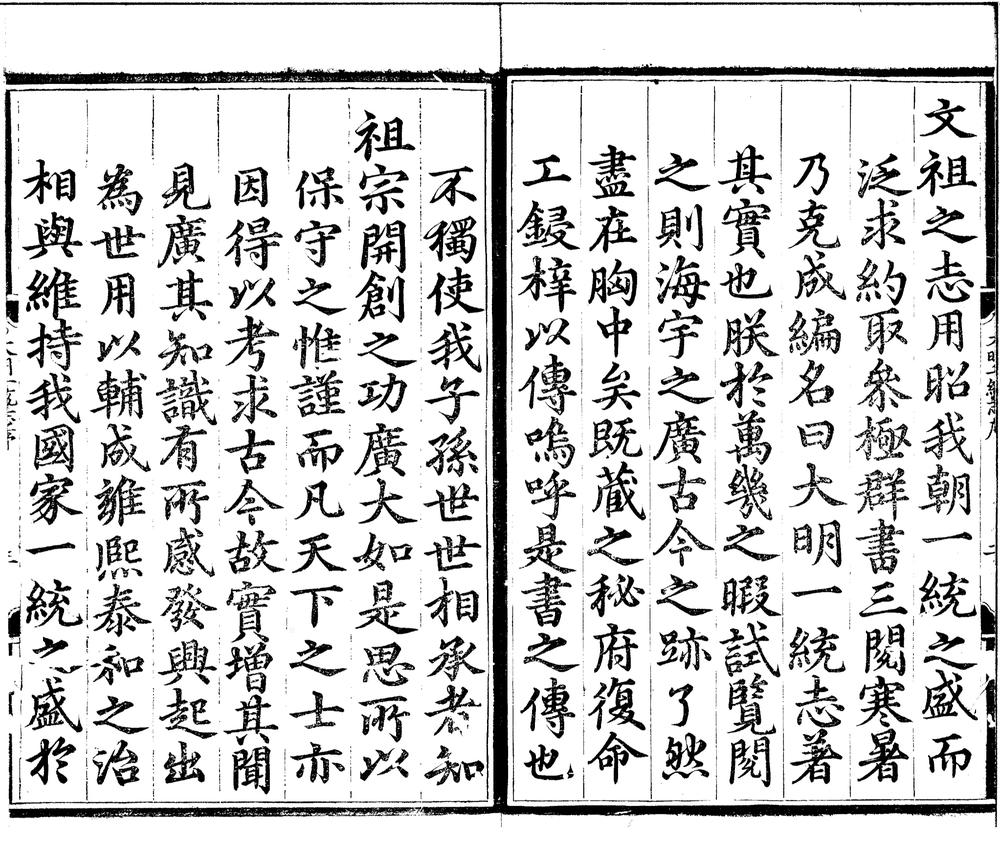 文祖之志用昭我朝一統之盛而
泛求約取叅極群書三閱寒暑
乃克成編名曰大明一統志著
其實也朕於萬幾之暇試覽閱
之則海宇之廣古今之跡了然
盡在胸中矣既藏之秘府復命
工鋟梓以傳嗚呼是書之傳也
不獨使我子孫世世相承者知
祖宗開創之功廣大如是思所以
保守之惟謹而凡天下之士亦
因得以考求古今故實增其聞
見廣其知識有所感發興起出
為世用以輔成雍熙泰和之治
相與維持我國家一統之盛於